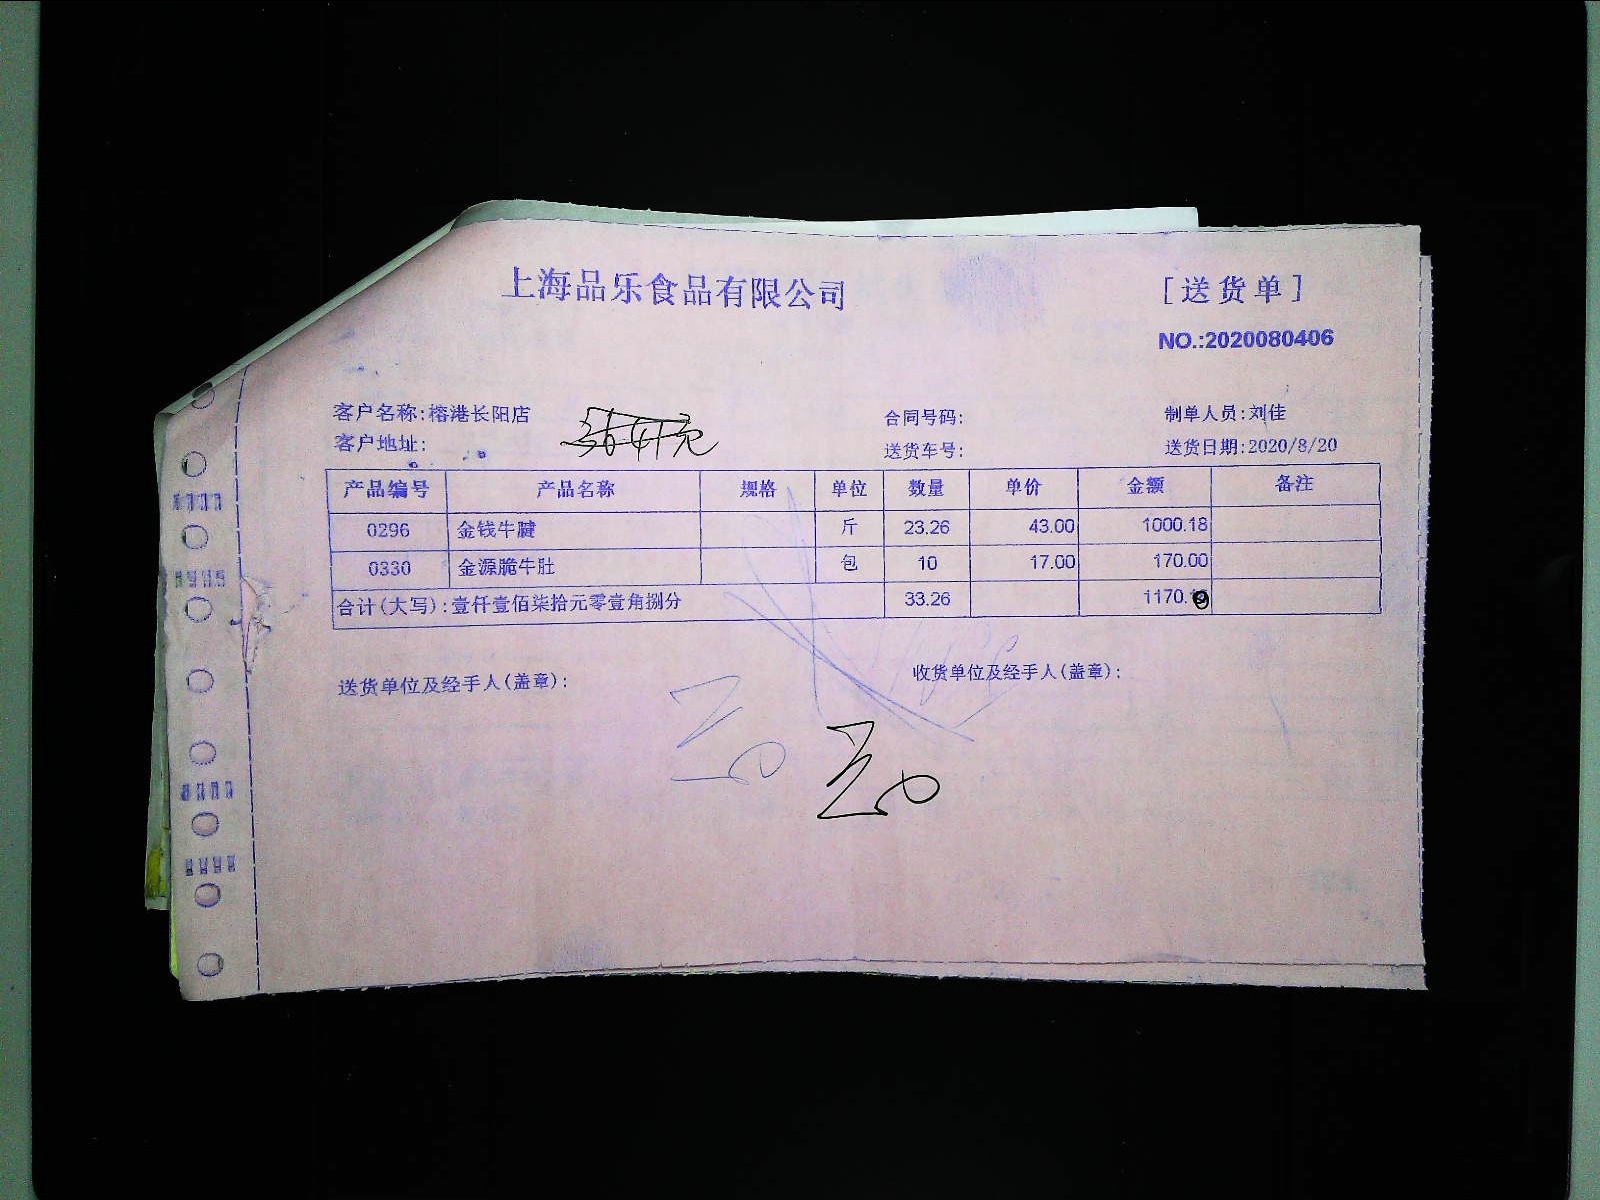 上海品乐食品有限公司
[送货单]
NO.:2020080406
客户名称:榕港长阳店 合同号码: 制单人员:刘佳
客户地址: 送货车号: 送货日期:2020/8/20
产品编号 产品名称 规格 单位 数量 单价 金额 备注
0296 金钱牛腱 斤 23.26 43.00 1000.18
0330 金源脆牛肚 包 10 17.00 170.00
合计(大写):壹仟壹佰柒拾元零壹角捌分 33.26
送货单位及经手人(盖章): 收货单位及经手人(盖章):